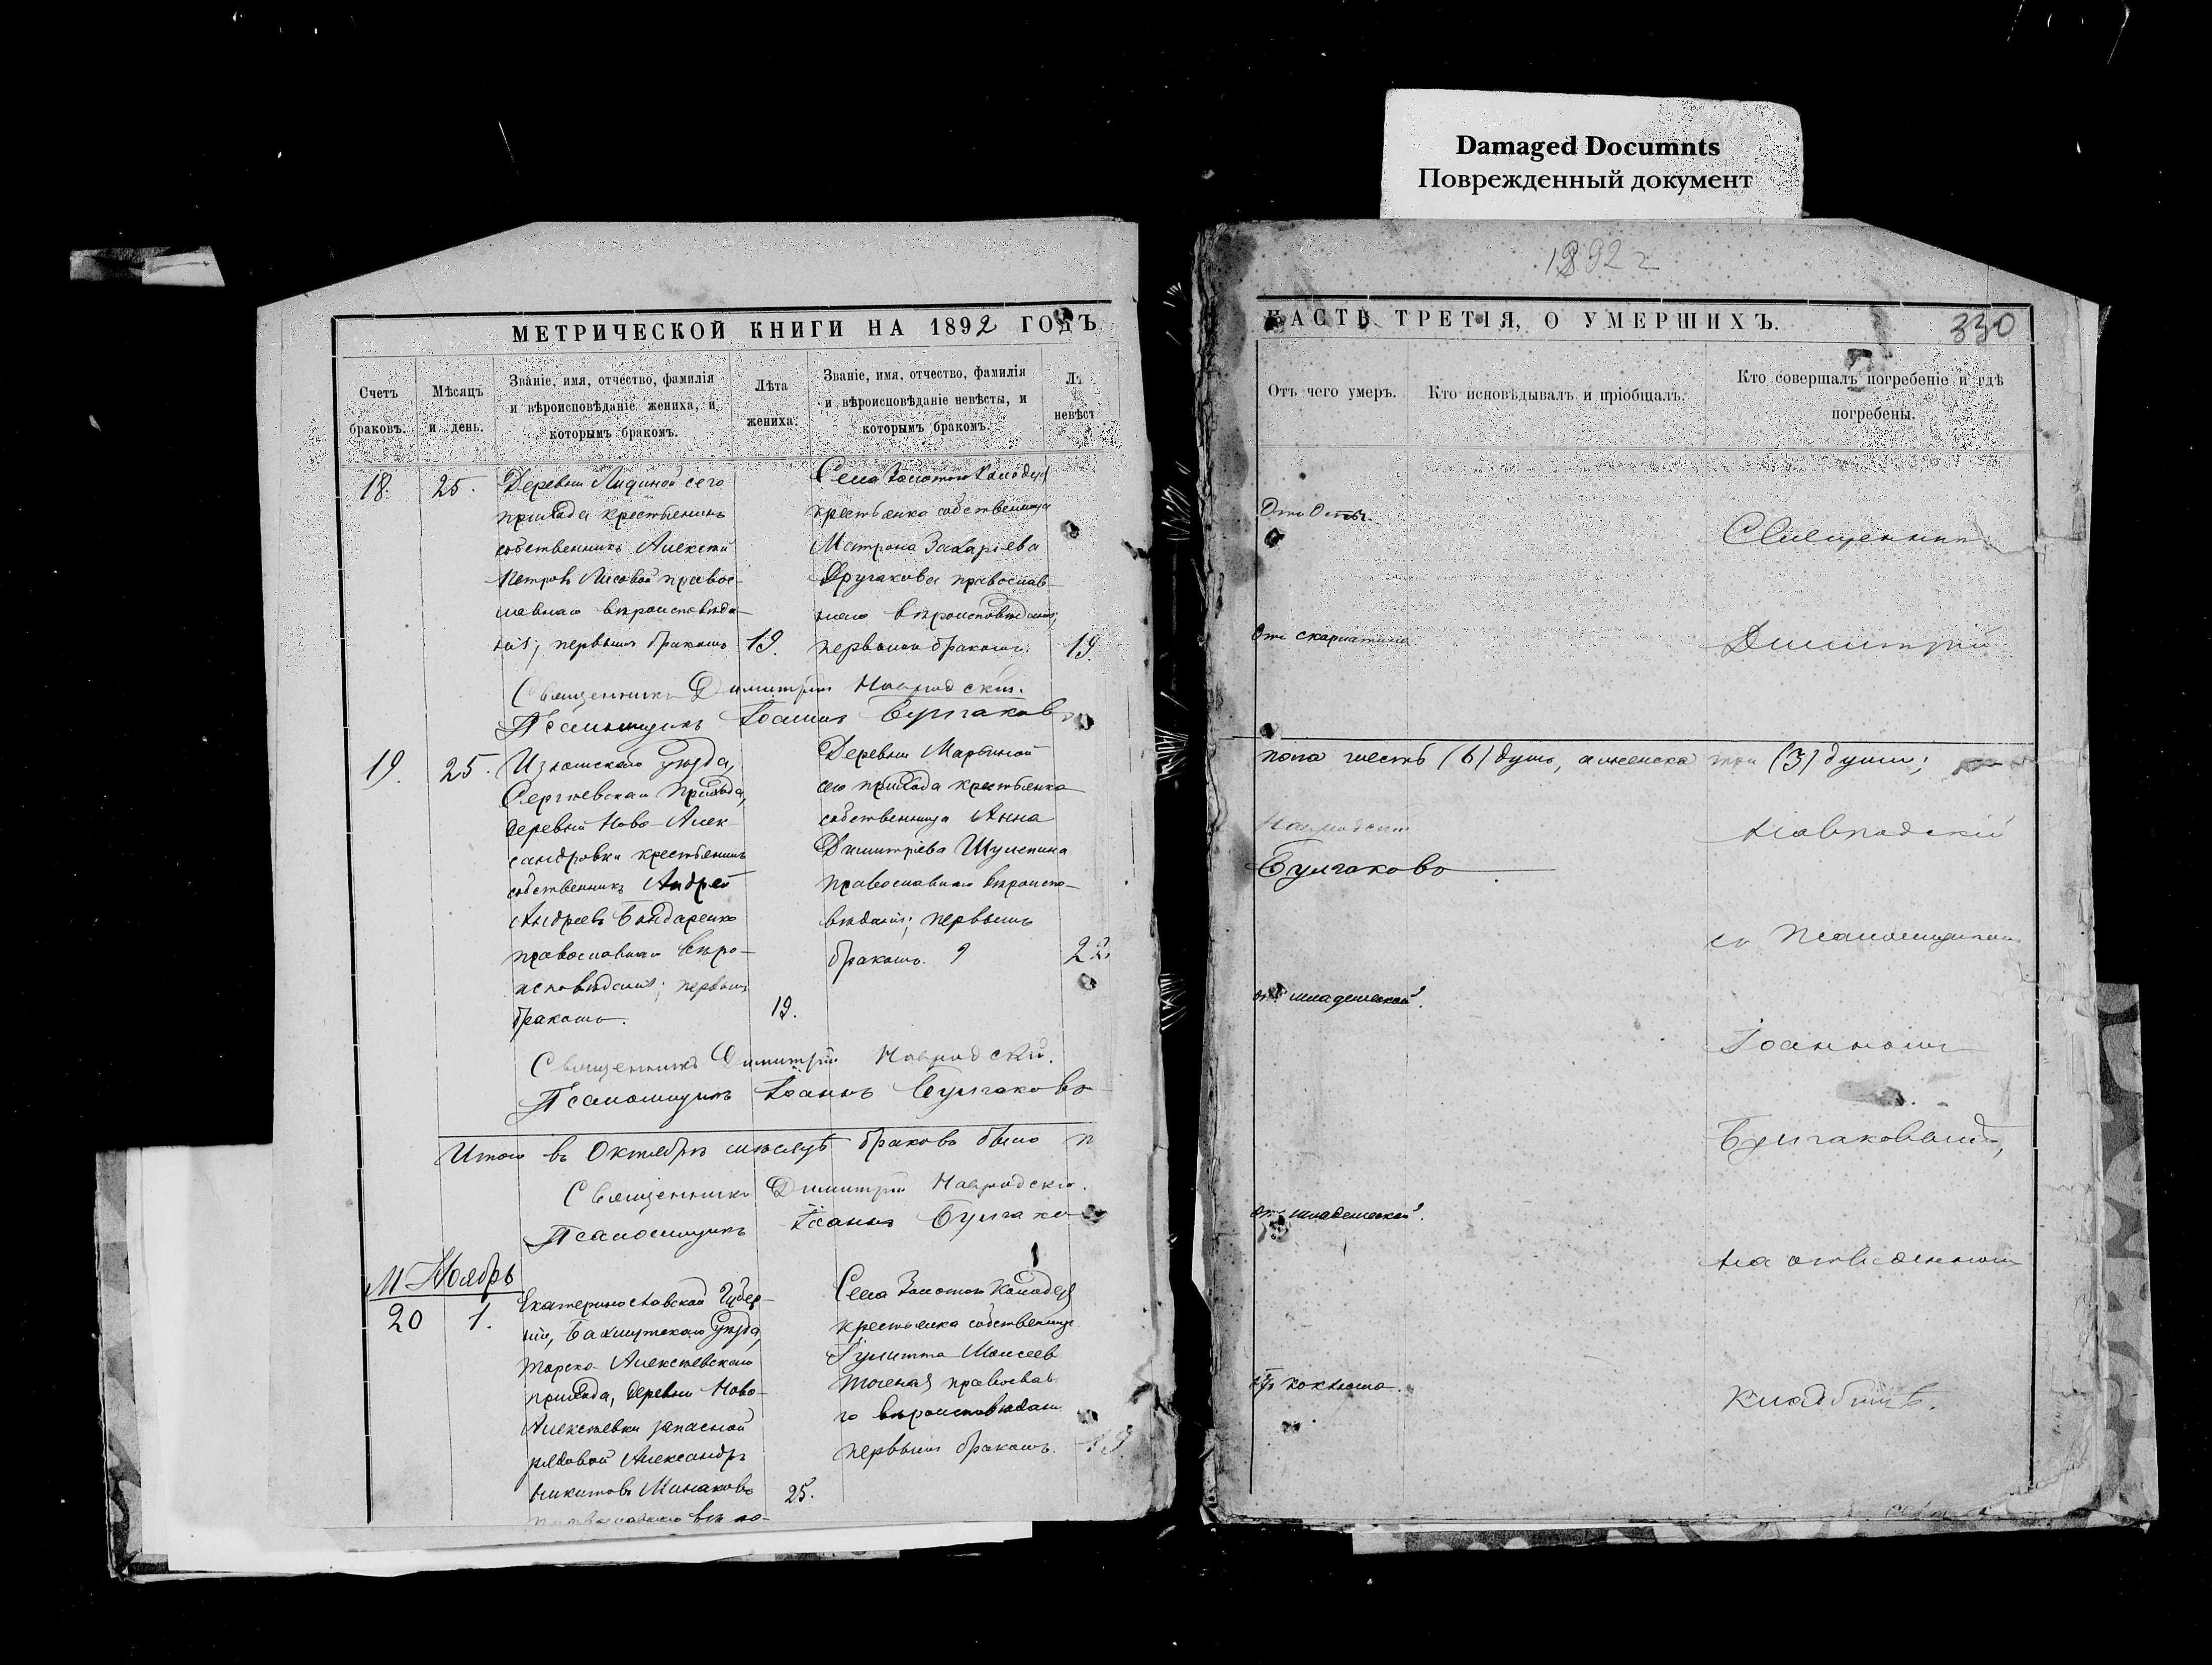 Damaged Documnts
Поврежденный документ
МЕТРИЧЕСКОЙ КНИГИ НА 1892 ГОДЪ
Счетъ браковъ.
Мѣсяцъ и день.
Званіе, имя, отчество, фамилія
и вѣроисповѣданіе жениха, и
которымъ бракомъ.
Лѣта
жениха.
Званіе, имя, отчество, фамилія
и вѣроисповѣданіе невѣсты, и
которымъ бракомъ.
Лѣ
невѣст
18.
25.
Деревни Лидиной сего
прихода крестьянинъ
собственникъ Алексій
Петровъ Лисовой правос-
лавнаго вѣроисповѣда-
нія; первымъ бракомъ
19.
Села Золотого Колодезя
крестьянка собственница
Матрона Захаріева
Другакова православ-
наго вѣроисповѣданія;
первымъ бракомъ.
19.
Священникъ Димитрій Навродскій.
Псаломщикъ Іоаннъ Булгаковъ
19.
25.
Изюмскаго уѣзда,
Сергіевскаго прихода,
деревни Ново-Алек
сандровки крестьянинъ
собственникъ Андрей
Андреевъ Бондаренко
православнаго вѣро-
исповѣданія; первымъ
бракомъ.
19.
Деревни Марьиной
сего прихода крестьянка
собственница Анна
Димитріева Шулепина
православнаго вѣроиспо-
вѣданія; первымъ
бракомъ.
22
Священникъ Димитрій Навродскій.
Псаломщикъ Іоаннъ Булгаковъ
Итого въ Октябрѣ мѣсяцѣ браковъ было п
Священникъ Димитрій Навродскі.
Псаломщикъ Іоаннъ Булгако
М Ноябрь
20
1.
Екатеринославской Губер-
ніи, Бахмутскаго уѣзда,
Торско-Алексѣевскаго
прихода, деревни Ново-
Алексѣевки запасной
рядовой Александръ
Никитовъ Минаковъ
православнаго вѣро-
25.
Села Золотого Колодезя
крестьянка собственница
Іулитта Моисеев
православ
го вѣроисповѣдані
первымъ бракомъ.
19
1892 г
ЧАСТЬ ТРЕТІЯ, О УМЕРШИХЪ.
330
Отъ чего умеръ.
Кто исповѣдывалъ и пріобщалъ.
Кто совершалъ погребеніе и гдѣ
погребены.
Отъ Оспы.
Священникъ
Отъ скарлатина.
Димитрій
пола шесть (6) душъ, а женска три (3) души;
Навродскій
Навродскій
Булгаковъ
съ Псаломщикомъ
отъ младенческой.
Іоанномъ
Булгаковымъ,
отъ младенческой.
на отведенномъ
отъ коклюша.
Кладбищѣ.